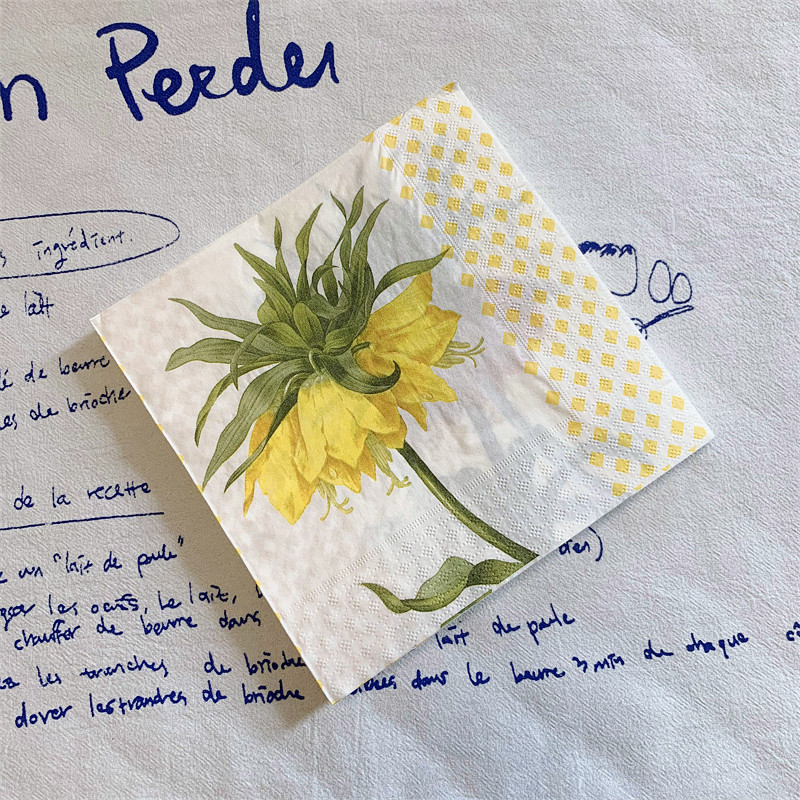 n Perdu
s ingrédient.
e lait
é de beurre
es de brioche
de la recette
e un "lait de poule"
ger les oeufs, le lait,
chauffer de beurre dans
lait de poule
les tranches de brioche
dans le beurre 3 min de chaque
dorer les tranches de brioche